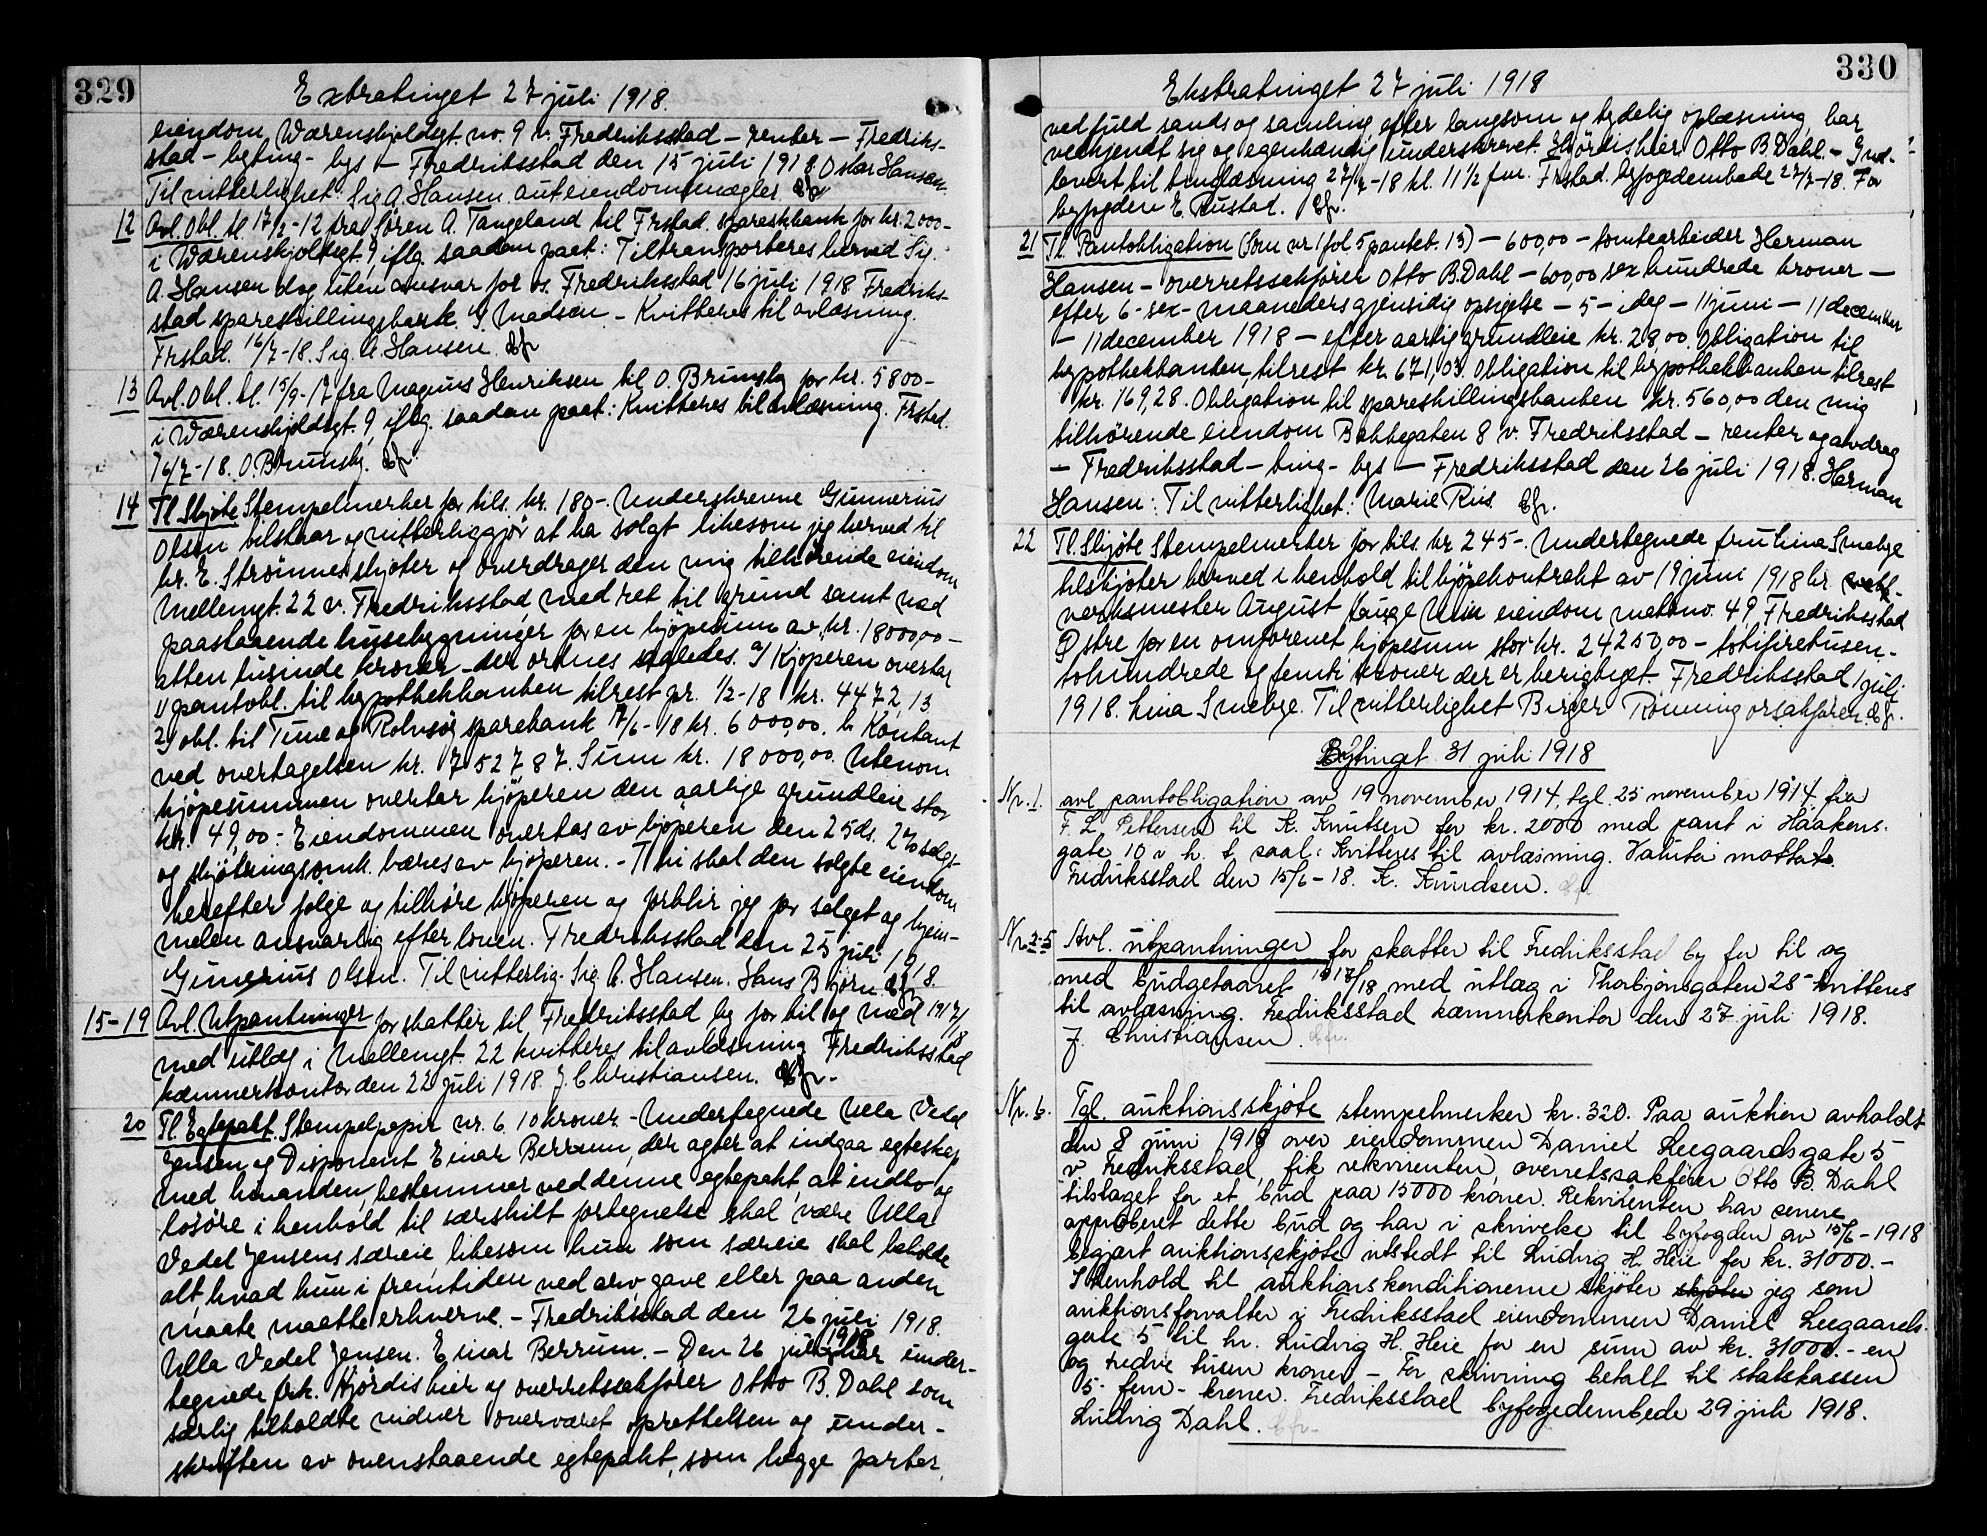 329
Extratinget 27 juli 1918.
eiendom Wærenskjoldsgt. no. 9 v. Fredriksstad – renter – Fredriks-
stad – byting – bys – Fredriksstad den 15 juli 1918. Oskar Hansen.
Til vitterlighet. Sig. A. Hansen aut eiendomsmægler. Cfr
12 Avl. Obl. tl. 17/2-12 fra Søren A. Tangeland til Frstad. spareskbank for kr. 2000-
i Wærenskjoldsgt. 9, iflg. saadan paat: Tiltransporteres herved Sig.
A. Hansen dog uten ansvar for os. Fredriksstad 16 juli 1918 Fredriks-
stad spareskillingsbank. Madsen. – Kvitteres til avlæsning.
Frstad. 16/7-18. Sig. A. Hansen. Cfr
13 Avl. Obl. tl. 15/9-17 fra Magnus Henriksen til O. Brunsby for kr. 5800-
i Wærenskjoldsgt. 9, iflg. saadan paat: Kvitteres til avlæsning. Frstad.
16/7-18. O. Brunsby. Cfr.
14 Tl. Skjøte Stempelmerker for tils. kr. 180- Underskrevne Gunnerius
Olsen tilstaar og vitterliggjør at ha solgt likesom jeg herved til
hr. E. Strømnes skjøter og overdrager den mig tilhørende eiendom
Mellemgt. 22 v. Fredriksstad, med ret til grund samt med
paastaaende husebygninger for en kjøpesum av kr. 18000,00 –
atten tusinde kroner – der ordnes saaledes. a/ Kjøperen overtar
1/ pantobl. til hypothekbanken tilrest pr. 1/2-18 kr. 4472,13
2/ obl. til Tune og Rolvsøy sparebank 17/6-18 kr. 6000,00. b Kontant
ved overtagelsen kr. 7527 87. Sum kr. 18000,00. Utenom
kjøpesummen overtar kjøperen den aarlige grundleie stor
kr. 49,00. – Eiendommen overtas av kjøperen den 25 ds. 2% salgs-
og skjøtningsomk. bæres av kjøperen. – Thi skal den solgte eiendom
herefter følge og tilhøre kjøperen og forblir jeg for salget og hjem-
melen ansvarlig efter loven. Fredriksstad den 25 juli 1918.
Gunerius Olsen. Til vitterlig. Sig. A. Hansen. Hans Bjørn. Cfr
15-19 Avl. Utpantninger for skatter til Fredriksstad by for til og med 1917/18
med utlæg i Mellemgt. 22 kvitteres til avlæsning Fredriksstad
kæmnerkontor den 22 juli 1918. J. Christiansen. Cfr.
20 Tl. Egtepakt. Stempelpapir nr. 6. 10 kroner. – Undertegnede Ulla Vedel
Jensen og Disponent Einar Berrum, der agter at indgaa egteskap
med hinanden, bestemmer ved denne egtepakt, at indbo og
løsøre i henhold til særskilt fortegnelse skal være Ulla
Vedel Jensens særeie, likesom hun som særeie skal beholde
alt, hvad hun i fremtiden ved arv, gave eller paa anden
maate maatte erhverve. – Fredriksstad den 26 juli 1918.
Ulla Vedel Jensen. Einar Berrum. – Den 26 juli 1918 har under-
tegnede frk. Hjørdis hier og overretssakfører Otto B. Dahl som
særlig tilholdte vidner overværet oprettelsen og under-
skriften av ovenstaaende egtepakt, som begge parter,
330
Ekstratinget 27 juli 1918
ved fuld sands og samling efter langsom og tydelig oplæsning har
vedkjendt sig og egenhændig underskrevet. Hjørdis hier Otto B. Dahl. – Ind-
levert til tinglæsning 27/7-18 kl. 11 1/2 fm. Frstad. byfogedembede 27/7-18. For
byfogden E. Rustad. Cfr.
21 Tl. Pantobligation (Som nr 1 fol 5 pantet. 13) – 600,00 – tomtearbeider Herman
Hansen – overretssakfører Otto B. Dahl – 600,00 sex hundrede kroner –
efter 6 - sex - maaneders gjensidig opsigelse – 5 – idag – 11 juni – 11 december
– 11 december 1918 – efter aarlig grundleie kr. 28,00. Obligation til
hypothekbanken, tilrest kr. 671,03. Obligation til hypothekbanken tilrest
kr. 169,28. Obligation til spareskillingsbanken kr. 560,00 den mig
tilhørende eiendom Bakkegaten 8 v. Fredriksstad – renter og avdrag
– Fredriksstad – ting – bys – Fredriksstad den 26 juli 1918. Herman
Hansen: Til vitterlighet: Marie Riis. Cfr.
22 Tl. Skjøte Stempelmerker for tils. kr 245-. Undertegnede fru Lina Smebye
tilskjøter herved i henhold til kjøpekontrakt av 19 juni 1918 hr.
verksmester August min eiendom matr no. 49 Fredriksstad
Østre for en omforenet kjøpesum stor kr. 24250,00 – totifiretusen-
tohundrede og femti kroner der er berigtiget. Fredriksstad 1 juli
1918. Lina Smebye. Til vitterlighet Birger Rønning orsakfører. Cfr.
Bytinget 31 juli 1918
Nr. 1. avl pantobligation av 19 november 1914, tgl. 25 november 1914 fra
F. L. Pettersen til K. Knutsen for kr. 2000 med pant i Haakens-
gate 10 i h. t. paat: Kvitteres til avlæsning. Valuta mottat.
Fredriksstad den 15/6-18. K. Knudsen. Cfr.
Nr. 2-5 Avl. utpantninger for skatter til Fredriksstad by for til og
med budgetaaret 1917/18 med utlæg i Thorbjørnsgaten 28 – kvitteres
til avlæsning. Fredriksstad kæmnerkontor den 27 juli 1918.
J. Christiansen. Cfr.
Nr. 6. Tgl. auktionsskjøte stempelmerker kr. 320. Paa auktion avholdt
den 8 juni 1918 over eiendommen Daniel Leegaardsgate 5
v Fredriksstad, fik rekvirenten, overretssakfører Otto B. Dahl
tilslaget for et bud paa 15000 kroner. Rekvirenten har senere
approbert dette bud og har i skrivelse til byfogden av 15/6-1918
begjært auktionsskjøte utstedt til Ludvig H. Heie for kr. 31000.-
I henhold til auktionskonditionerne skjøter skjøter jeg som
auktionsforvalter i Fredriksstad eiendommen Daniel Leegaards-
gate 5 til hr. Ludvig H. Heie for en sum av kr. 31000.- en
og tredve tusen kroner. – For skrivning betalt til statskassen
5 - fem - kroner. Fredriksstad byfogedembede 29 juli 1918.
Ludvig Dahl. Cfr.